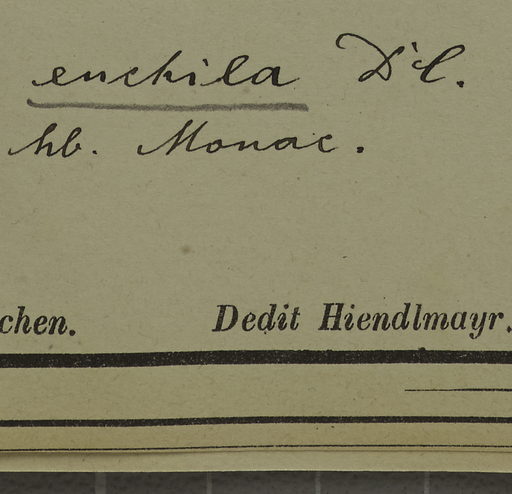 enchila DC.
hb. Monac.
chen. Dedit Hiendlmayr.